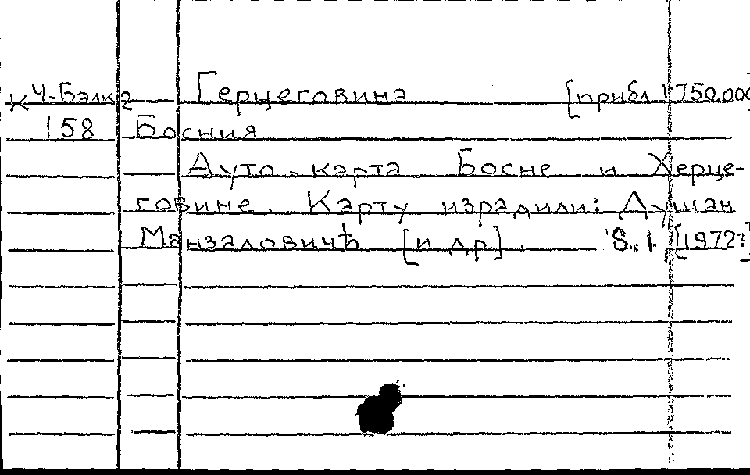 К Ч-Балк 2 Герцеговина [прибл 1:750.000
158 Босния
Ауто-карта Босне и Херце-
говине. Карту израдили: Душан
Манзаловичћ [и др]. S.l., [1972?]